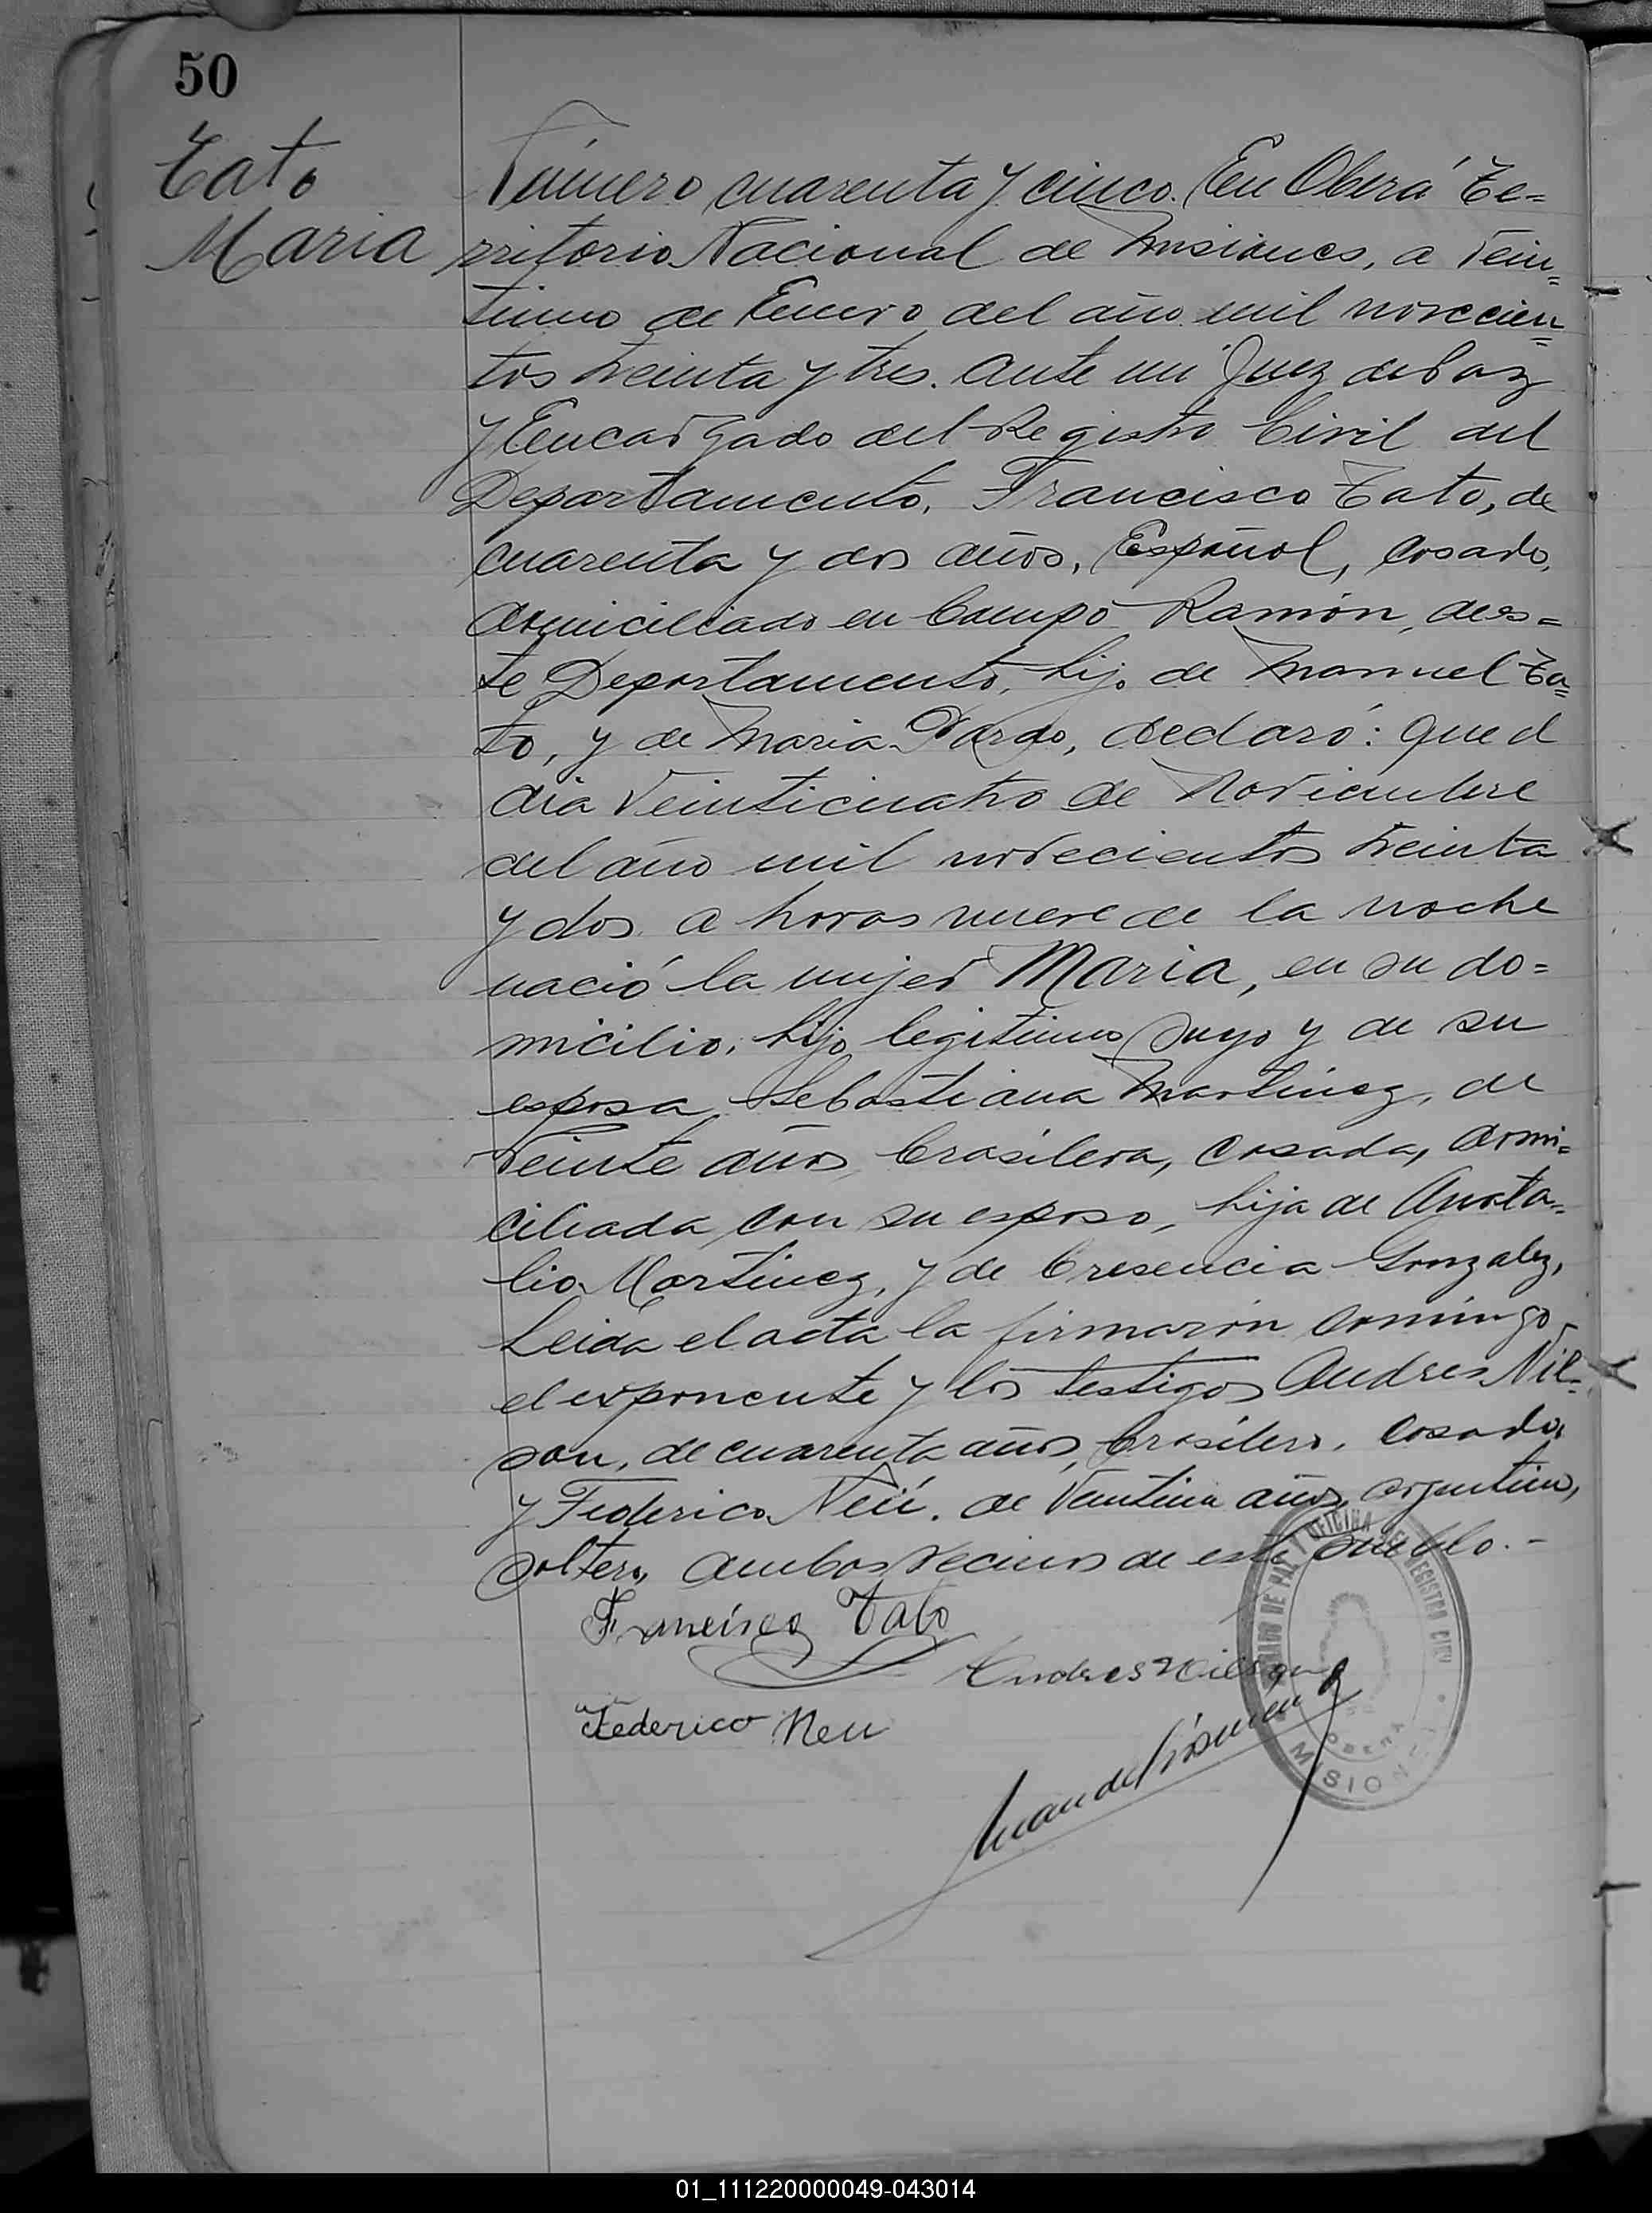 50
Tato
Maria
Número cuarenta y cinco. En Oberá Te=
rritorio Nacional de Misiones, a Vein=
tiuno de Enero del año mil novecien=
tos treinta y tres. Ante mi Juez de Paz
y Encargado del Registro Civil del
Departamento, Francisco Tato, de
cuarenta y dos años, Español, casado,
domiciliado en Campo Ramón, des=
te Departamento, hijo de Manuel Ta=
to, y de Maria Pardo, declaró: que el
dia veinticuatro de Noviembre
del año mil novecientos treinta
y dos a horas nueve de la noche
nació la mujer Maria, en su do=
micilio, hijo legitimo suyo y de su
esposa, Sebastiana Martinez, de
veinte años brasilera, casada, domi=
ciliada con su esposo, hija de Anata=
lio Martinez, y de Cresencia Gonzalez,
Leida el acta la firmaron conmigo
el exponente y los testigos Andres Nil=
son, de cuarenta años, brasilero, casado
y Federico Neü. de Veintiun años, argentino,
soltero, ambos vecinos de este pueblo.-
Francisco Tato
Andres Nilson
Federico Neu
JUZGADO DE PAZ Y OFICINA DEL REGISTRO CIVIL
OBERÁ
MISIONES
01_111220000049-043014